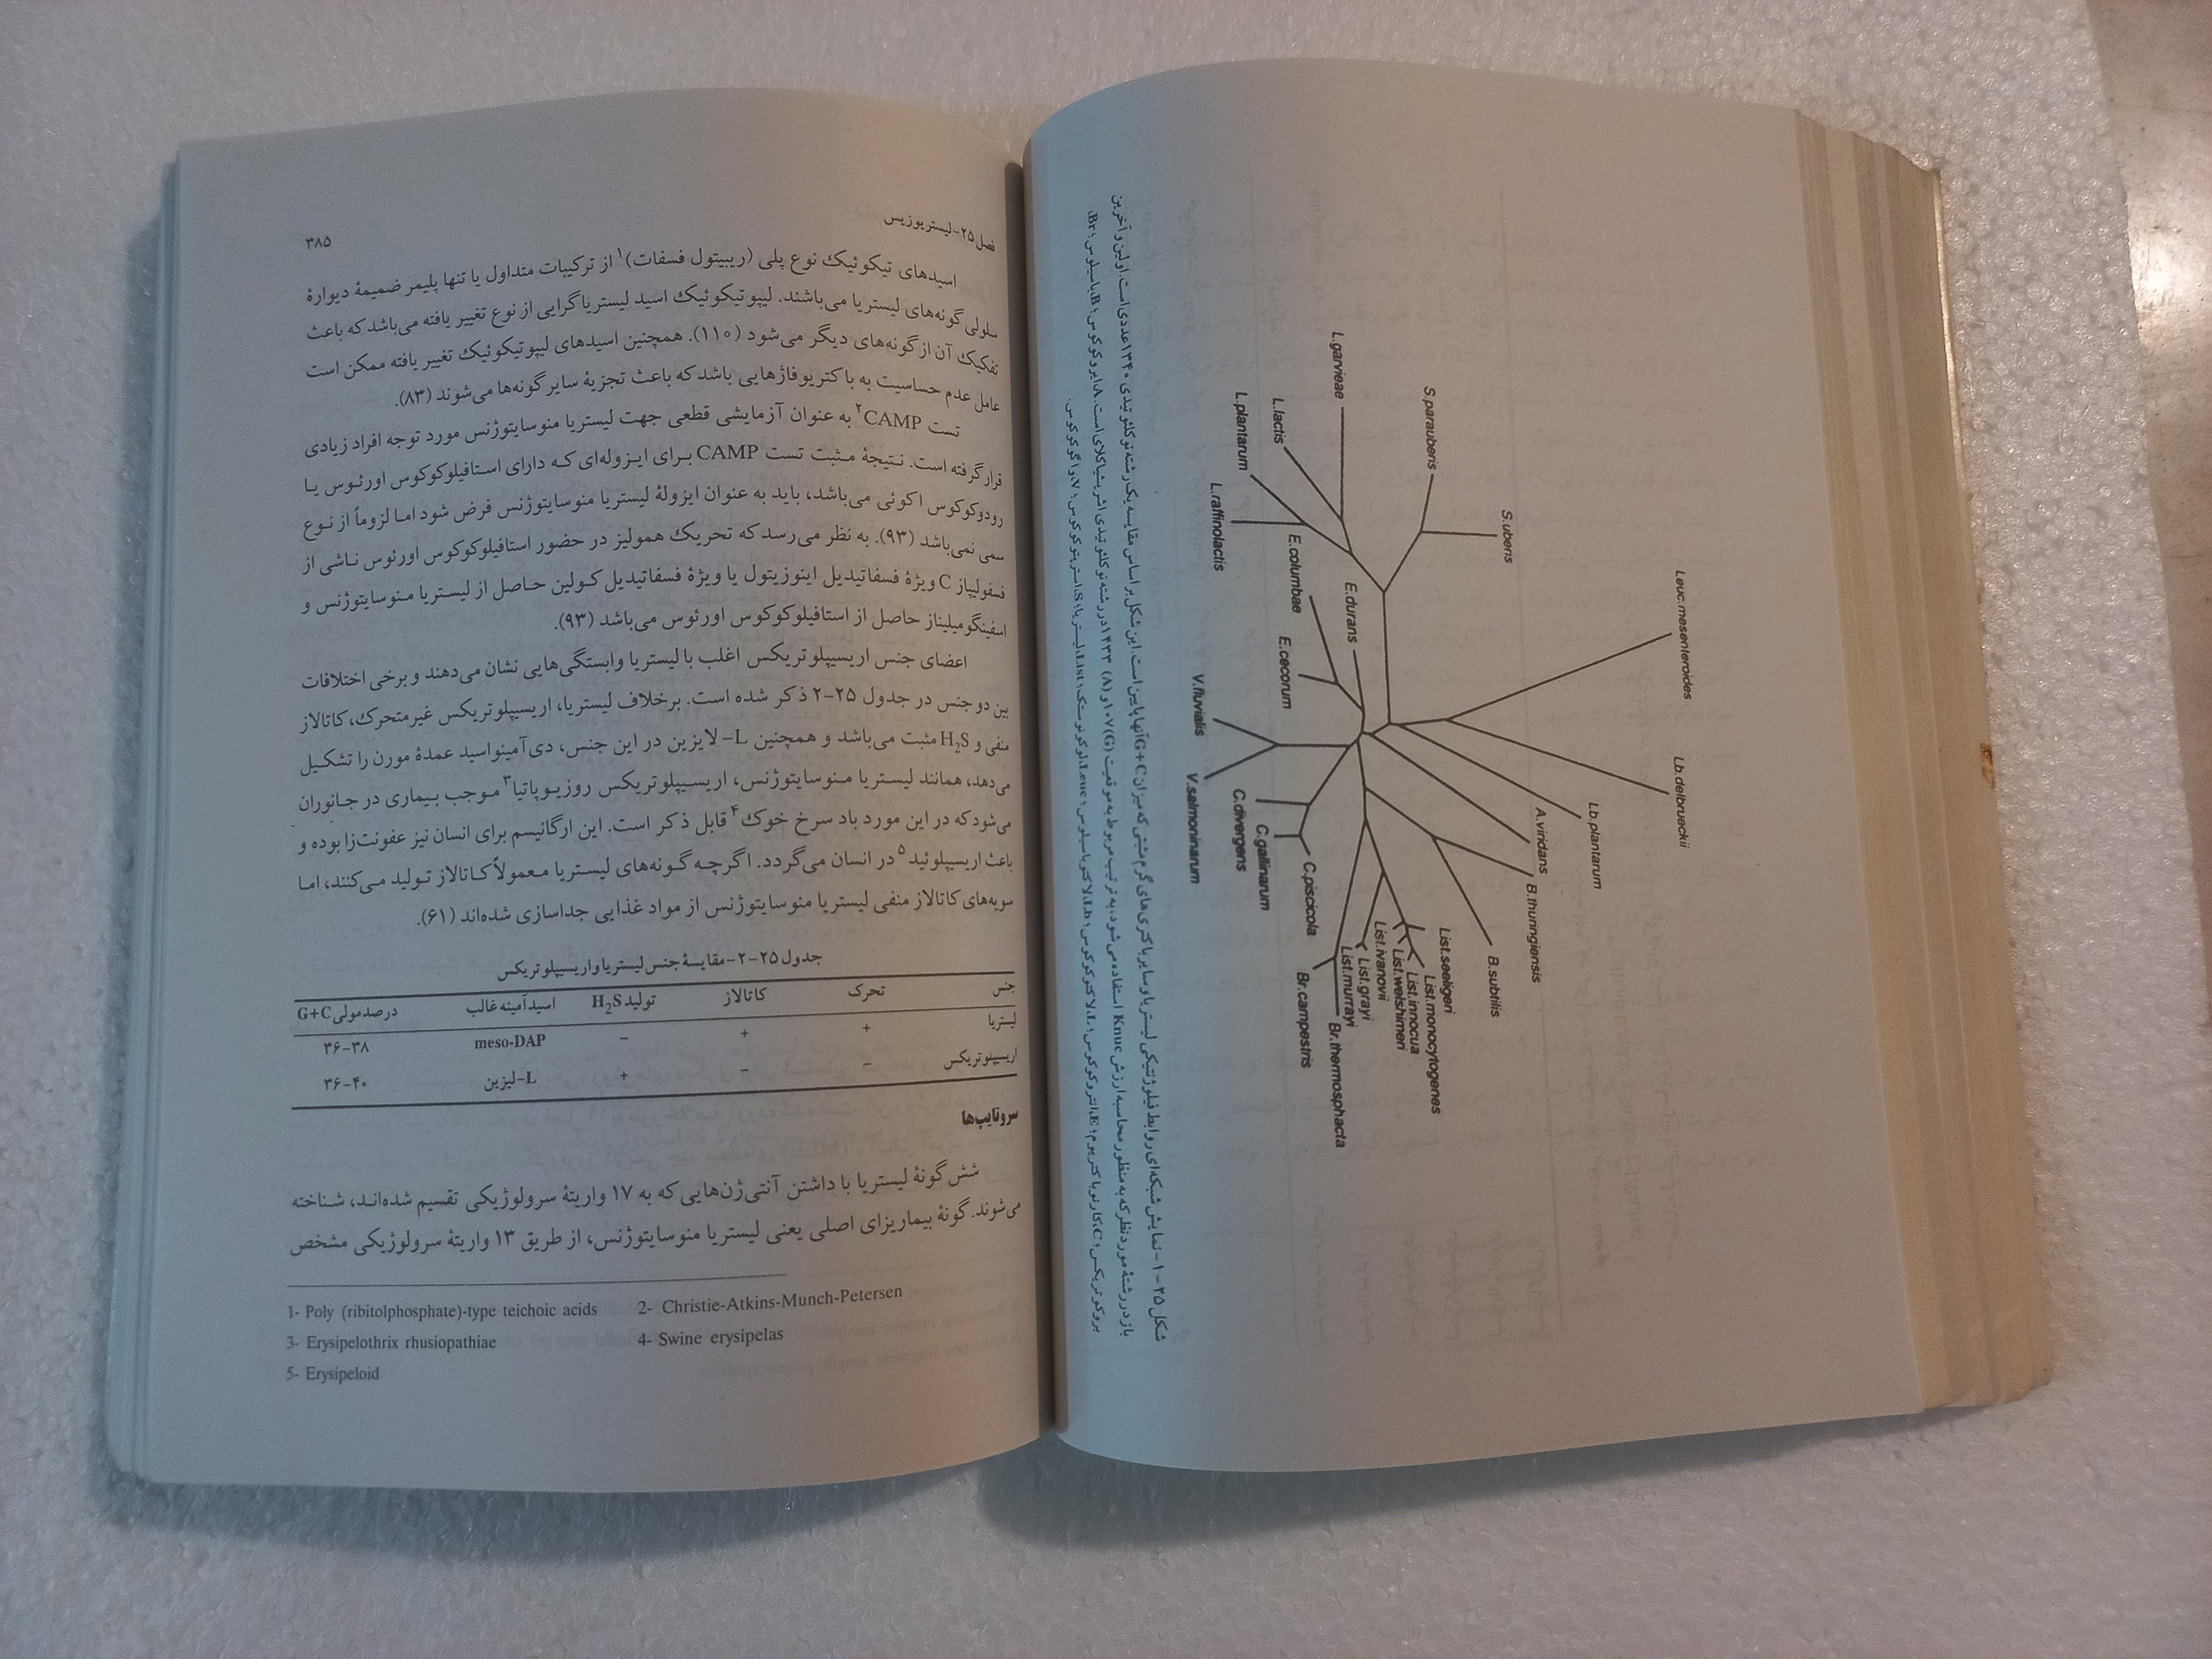 S.uberis
S.parauberis
L.garvieae
L.lactis
L.plantarum
L.raffinolactis
E.columbae
E.durans
E.cecorum
V.fluvialis
V.salmoninarum
C.divergens
C.gallinarum
C.piscicola
Br.campestris
Br.thermosphacta
List.murrayi
List.grayi
List.ivanovii
List.welshimeri
List.innocua
List.monocytogenes
List.seeligeri
B.subtilis
B.thuringiensis
A.viridans
Lb.plantarum
Lb.delbrueckii
Leuc.mesenteroides
شکل ۲۵-۱- نمایش شبکه‌ای روابط فیلوژنتیکی لیستریا و سایر باکتری‌های گرم مثبتی که میزان G+C آنها پایین است. این شکل بر اساس مقایسه یک رشته نوکلئوتیدی ۱۳۴۰ عددی است. اولین و آخرین
باز در رشتهٔ مورد نظر که به منظور محاسبه ارزش Knuc استفاده می‌شود، به ترتیب مربوط به موقعیت (G) ۱۰۷ و (A) ۱۴۳۳ در رشته نوکلئوتیدی اشریشیاکلای است. A، ایروکوکوس؛ B، باسیلوس؛ Br،
بروکوتریکس؛ C، کارنوباکتریوم؛ E، انتروکوکوس؛ L، لاکتوکوکوس؛ Lb، لاکتوباسیلوس؛ Leuc، لوکونوستک؛ List، لیستریا؛ S، استرپتوکوکوس؛ V، واگوکوکوس.
فصل ۲۵-لیستریوزیس
۳۸۵
اسیدهای تیکوئیک نوع پلی (ریبیتول فسفات)۱ از ترکیبات متداول یا تنها پلیمر ضمیمهٔ دیوارهٔ
سلولی گونه‌های لیستریا می‌باشند. لیپوتیکوئیک اسید لیستریاگرایی از نوع تغییر یافته می‌باشد که باعث
تفکیک آن از گونه‌های دیگر می‌شود (۱۱۰). همچنین اسیدهای لیپوتیکوئیک تغییر یافته ممکن است
عامل عدم حساسیت به باکتریوفاژهایی باشد که باعث تجزیهٔ سایر گونه‌ها می‌شوند (۸۳).
تست CAMP۲ به عنوان آزمایشی قطعی جهت لیستریا منوسایتوژنس مورد توجه افراد زیادی
قرار گرفته است. نتیجهٔ مثبت تست CAMP برای ایزوله‌ای که دارای استافیلوکوکوس اورئوس یا
رودوکوکوس اکوئی می‌باشد، باید به عنوان ایزولهٔ لیستریا منوسایتوژنس فرض شود اما لزوماً از نوع
سمی نمی‌باشد (۹۳). به نظر می‌رسد که تحریک همولیز در حضور استافیلوکوکوس اورئوس ناشی از
فسفولیپاز C ویژهٔ فسفاتیدیل اینوزیتول یا ویژهٔ فسفاتیدیل کولین حاصل از لیستریا منوسایتوژنس و
اسفینگومیلیناز حاصل از استافیلوکوکوس اورئوس می‌باشد (۹۳).
اعضای جنس اریسیپلوتریکس اغلب با لیستریا وابستگی‌هایی نشان می‌دهند و برخی اختلافات
بین دو جنس در جدول ۲۵-۲ ذکر شده است. برخلاف لیستریا، اریسیپلوتریکس غیرمتحرک، کاتالاز
منفی و H2S مثبت می‌باشد و همچنین L- لایزین در این جنس، دی‌آمینواسید عمدهٔ مورن را تشکیل
می‌دهد، همانند لیستریا منوسایتوژنس، اریسیپلوتریکس روزیوپاتیا۳ موجب بیماری در جانوران
می‌شود که در این مورد باد سرخ خوک۴ قابل ذکر است. این ارگانیسم برای انسان نیز عفونت‌زا بوده و
باعث اریسیپلوئید۵ در انسان می‌گردد. اگرچه گونه‌های لیستریا معمولاً کاتالاز تولید می‌کنند، اما
سویه‌های کاتالاز منفی لیستریا منوسایتوژنس از مواد غذایی جداسازی شده‌اند (۶۱).
جدول ۲۵-۲- مقایسهٔ جنس لیستریا و اریسیپلوتریکس
جنس تحرک کاتالاز تولید H2S اسیدآمینه غالب درصد مولی G+C
لیستریا + + − meso-DAP ۳۶-۳۸
اریسیپلوتریکس − − + L-لیزین ۳۶-۴۰
سروتایپ‌ها
شش گونهٔ لیستریا با داشتن آنتی‌ژن‌هایی که به ۱۷ واریتهٔ سرولوژیکی تقسیم شده‌اند، شناخته
می‌شوند. گونهٔ بیماریزای اصلی یعنی لیستریا منوسایتوژنس، از طریق ۱۳ واریتهٔ سرولوژیکی مشخص
1- Poly (ribitolphosphate)-type teichoic acids 2- Christie-Atkins-Munch-Petersen
3- Erysipelothrix rhusiopathiae 4- Swine erysipelas
5- Erysipeloid